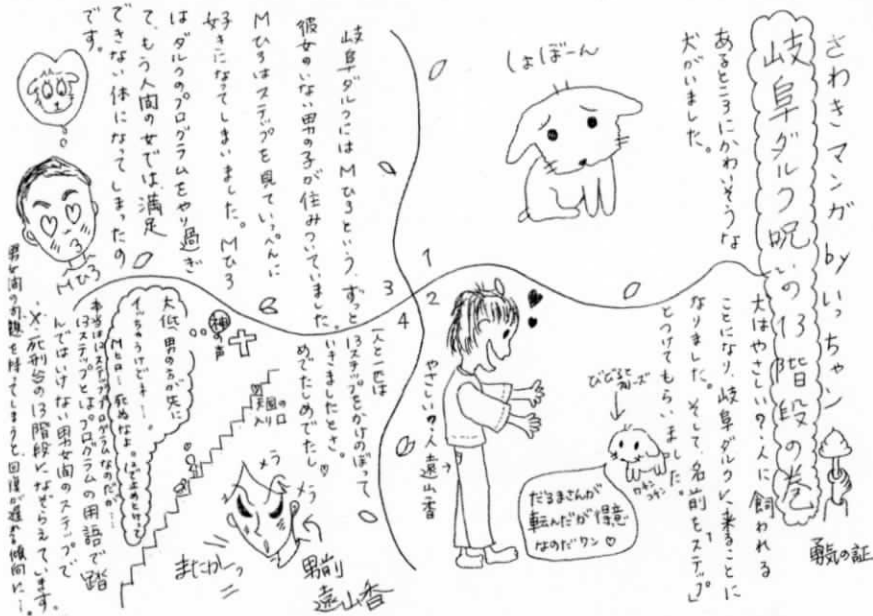 さわきマンガ byいっちゃん
岐阜ダルク呪いの13階段の巻
勇気の証
1
あるところにかわいそうな
犬がいました。
しょぼーん
2
犬はやさしい？人に飼われる
ことになり、岐阜ダルクに来ることに
なりました。そして、名前を「ステップ」
とつけてもらいました。
びびると
フリーズ
カチン
コチン
だるまさんが
転んだが得意
なのだワン♡
やさしい？人 遠山香→
3
岐阜ダルクにはMひろという、ずっと
彼女のいない男の子が住みついていました。
Mひろはステップを見ていっぺんに
好きになってしまいました。Mひろ
はダルクのプログラムをやり過ぎ
て、もう人間の女では、満足
できない体になってしまったの
です。
Mひろ
4
一人と一匹は
13ステップをかけのぼって
いきましたとさ。
めでたしめでたし♡
天国の
入り口
神の声
大低、男の方が先に
イッちゃうけどネ…。
Mヒロー死ぬなよ。
本当は12ステッププログラムなのだが…
13ステップとはプログラムの用語で踏
んではいけない男女間のステップで
※死刑台の13階段になぞらえています。
男女間の問題を持ってしまうと、回復が遅れる傾向に…。
メラ
メラ
またかしっ
男前
遠山香